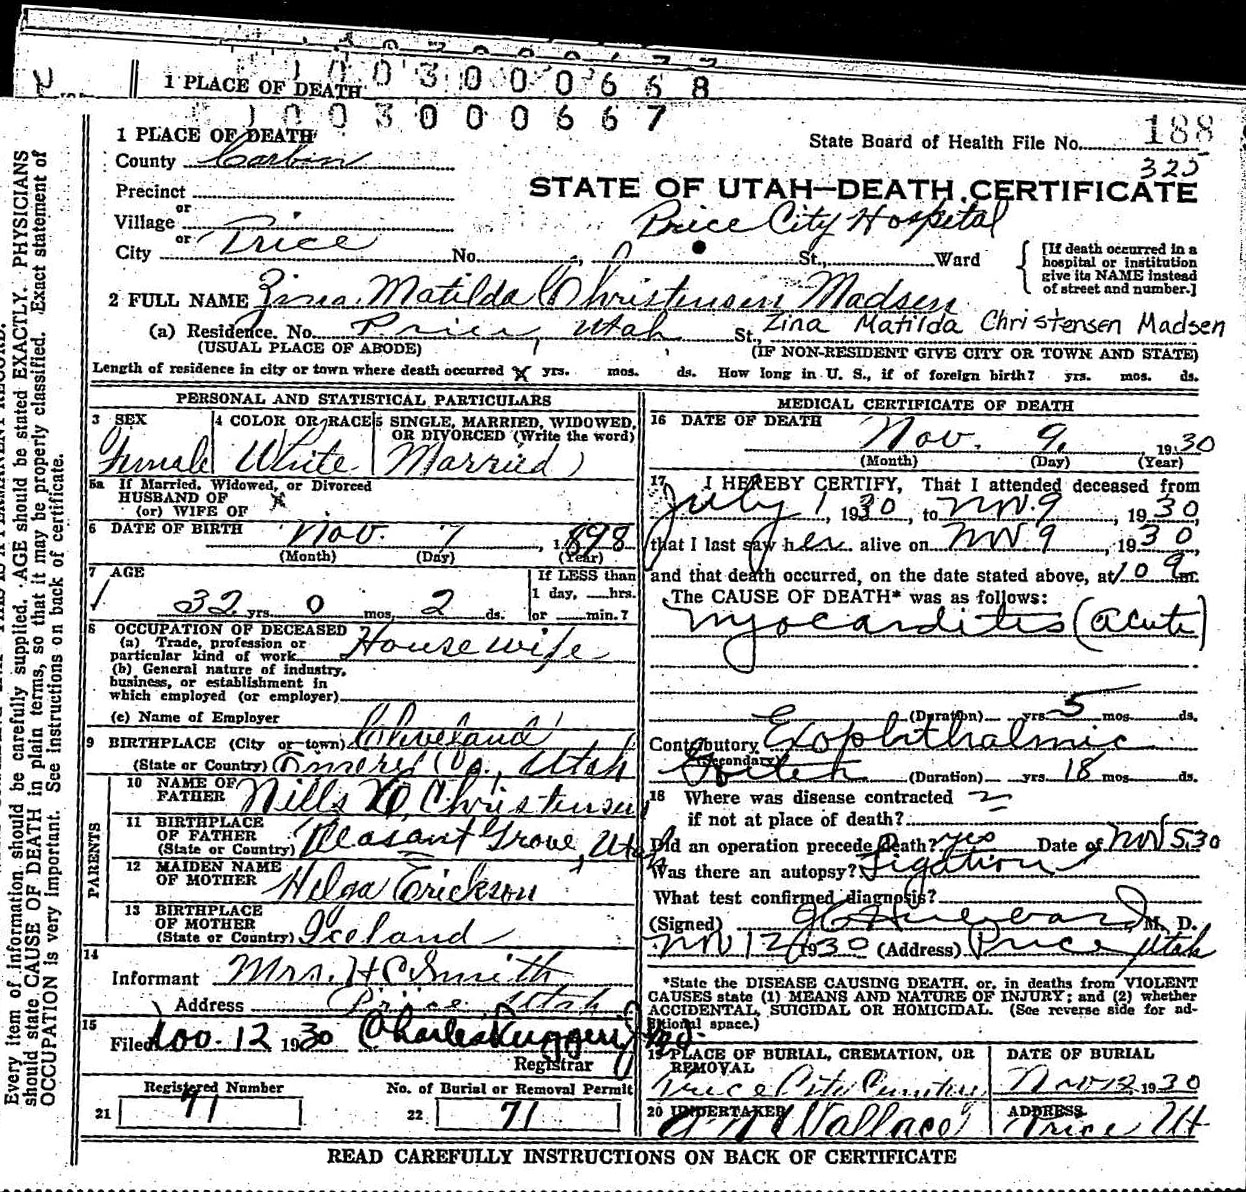 1 PLACE OF DEATH
1003000668
1003000667
1 PLACE OF DEATH
State Board of Health File No. 188
325
County Carbon
STATE OF UTAH—DEATH CERTIFICATE
Precinct
or
Village
Price City Hospital
or
City Price No. St., Ward
[If death occurred in a hospital or institution give its NAME instead of street and number.]
2 FULL NAME Zina Matilda Christensen Madsen
(a) Residence. No. Price, Utah St., Zina Matilda Christensen Madsen
(USUAL PLACE OF ABODE) (IF NON-RESIDENT GIVE CITY OR TOWN AND STATE)
Length of residence in city or town where death occurred x yrs. mos. ds. How long in U. S., if of foreign birth? yrs. mos. ds.
PERSONAL AND STATISTICAL PARTICULARS
3 SEX 4 COLOR OR RACE 5 SINGLE, MARRIED, WIDOWED, OR DIVORCED (Write the word)
Female White Married
5a If Married, Widowed, or Divorced
HUSBAND OF x
(or) WIFE OF
6 DATE OF BIRTH Nov. 7, 1898
(Month) (Day) (Year)
7 AGE If LESS than
1 day, hrs.
32 yrs. 0 mos. 2 ds. or min.?
8 OCCUPATION OF DECEASED
(a) Trade, profession or particular kind of work Housewife
(b) General nature of industry, business, or establishment in which employed (or employer)
(c) Name of Employer
9 BIRTHPLACE (City or town) Cleveland
(State or Country) Emery Co., Utah
PARENTS
10 NAME OF FATHER Nills Christensen
11 BIRTHPLACE OF FATHER (State or Country) Pleasant Grove, Utah
12 MAIDEN NAME OF MOTHER Helga Erickson
13 BIRTHPLACE OF MOTHER (State or Country) Iceland
14
Informant Mrs. H C Smith
Address Price, Utah
15
Filed Nov. 12 1930 Charles Ruggeri Jr. M.D.
Registrar
Registered Number No. of Burial or Removal Permit
21 71 22 71
MEDICAL CERTIFICATE OF DEATH
16 DATE OF DEATH
Nov. 9, 1930
(Month) (Day) (Year)
17 I HEREBY CERTIFY, That I attended deceased from
July 1, 1930, to Nov 9, 1930,
that I last saw her alive on Nov 9, 1930,
and that death occurred, on the date stated above, at 10 m.
The CAUSE OF DEATH* was as follows:
Myocarditis (acute)
(Duration) yrs. 5 mos. ds.
Contributory Exophthalmic
(Secondary)
Goiter (Duration) yrs. 18 mos. ds.
18 Where was disease contracted
if not at place of death?
Did an operation precede death? yes Date of Nov 5, 30
Was there an autopsy? Ligation
What test confirmed diagnosis?
(Signed) M. D.
Nov 12 1930 (Address) Price Utah
*State the DISEASE CAUSING DEATH, or, in deaths from VIOLENT
CAUSES state (1) MEANS AND NATURE OF INJURY; and (2) whether
ACCIDENTAL, SUICIDAL OR HOMICIDAL. (See reverse side for additional space.)
19 PLACE OF BURIAL, CREMATION, OR REMOVAL DATE OF BURIAL
Price City Cemetery Nov 12, 1930
20 UNDERTAKER ADDRESS
Wallace Price Ut
READ CAREFULLY INSTRUCTIONS ON BACK OF CERTIFICATE
Every item of information should be carefully supplied. AGE should be stated EXACTLY. PHYSICIANS
should state CAUSE OF DEATH in plain terms, so that it may be properly classified. Exact statement of
OCCUPATION is very important. See instructions on back of certificate.